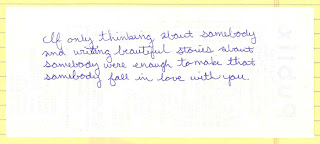 If only thinking about somebody
and writing beautiful stories about
somebody were enough to make that
somebody fall in love with you.
Publix